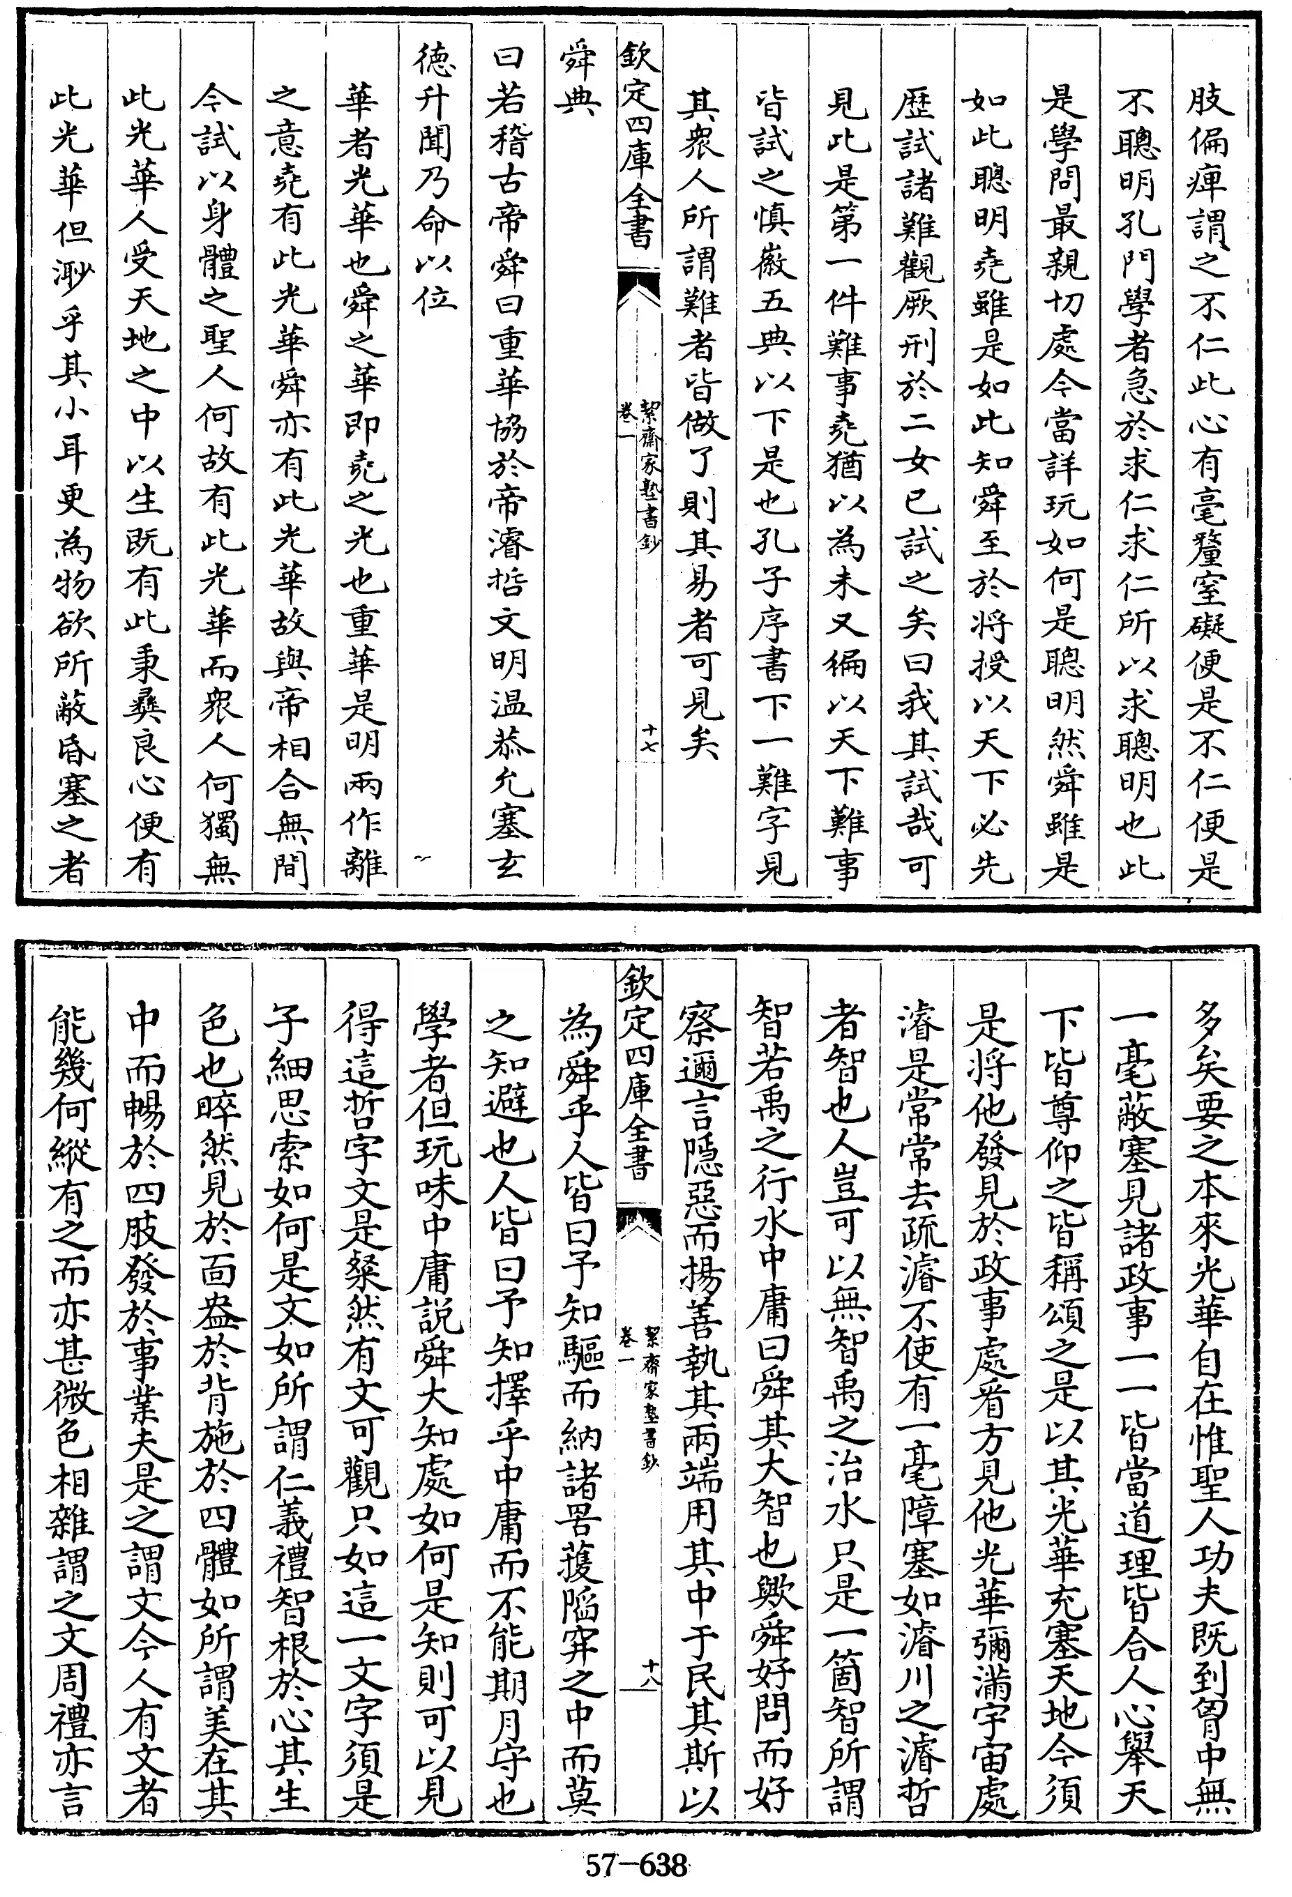 肢偏痺謂之不仁此心有毫釐窒礙便是不仁便是
不聰明孔門學者急於求仁求仁所以求聰明也此
是學問最親切處今當詳玩如何是聰明然舜雖是
如此聰明堯雖是如此知舜至於將授以天下必先
歴試諸難觀厥刑於二女已試之矣曰我其試哉可
見此是第一件難事堯猶以為未又徧以天下難事
皆試之慎徽五典以下是也孔子序書下一難字見
其衆人所謂難者皆做了則其易者可見矣
欽定四庫全書
絜齋家塾書鈔
卷一
十七
舜典
曰若稽古帝舜曰重華協於帝濬哲文明温恭允塞玄
徳升聞乃命以位
華者光華也舜之華即堯之光也重華是明兩作離
之意堯有此光華舜亦有此光華故與帝相合無間
今試以身體之聖人何故有此光華而衆人何獨無
此光華人受天地之中以生既有此秉彝良心便有
此光華但渺乎其小耳更為物欲所蔽昏塞之者
多矣要之本來光華自在惟聖人功夫既到胷中無
一毫蔽塞見諸政事一一皆當道理皆合人心舉天
下皆尊仰之皆稱頌之是以其光華充塞天地今須
是將他發見於政事處看方見他光華彌滿宇宙處
濬是常常去疏濬不使有一毫障塞如濬川之濬哲
者智也人豈可以無智禹之治水只是一箇智所謂
智若禹之行水中庸曰舜其大智也歟舜好問而好
察邇言隠惡而揚善執其兩端用其中于民其斯以
欽定四庫全書
絜齋家塾書鈔
卷一
十八
為舜乎人皆曰予知驅而納諸罟蒦陷穽之中而莫
之知避也人皆曰予知擇乎中庸而不能期月守也
學者但玩味中庸説舜大知處如何是知則可以見
得這哲字文是粲然有文可觀只如這一文字須是
子細思索如何是文如所謂仁義禮智根於心其生
色也睟然見於面盎於背施於四體如所謂美在其
中而暢於四肢發於事業夫是之謂文今人有文者
能幾何縱有之而亦甚微色相雜謂之文周禮亦言
57-638